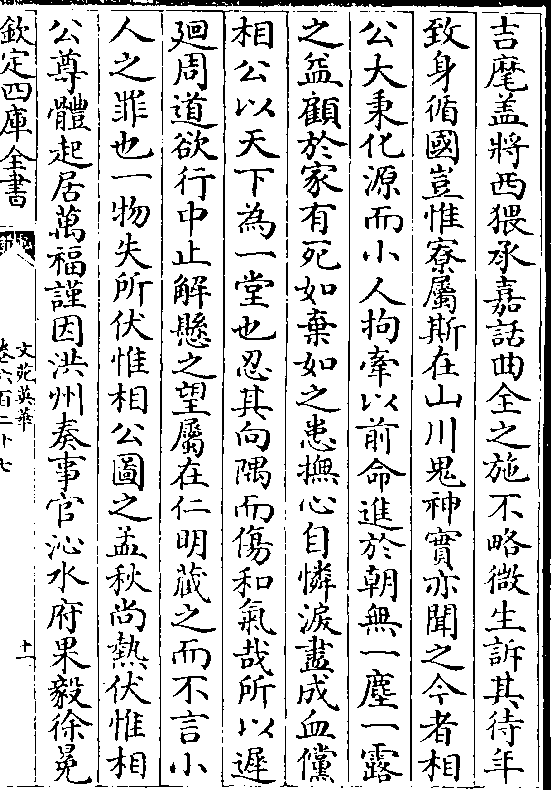 吉麾盖將西猥承嘉話曲全之施不略微生訴其待年
致身循國豈惟寮屬斯在山川鬼神實亦聞之今者相
公大秉化源而小人拘牽以前命進於朝無一塵一露
之益顧於家有死如棄如之患撫心自憐淚盡成血儻
相公以天下為一堂也忍其向隅而傷和氣哉所以遲
廻周道欲行中止解懸之望屬在仁明藏之而不言小
人之罪也一物失所伏惟相公圖之孟秋尚熱伏惟相
公尊體起居萬福謹因洪州奏事官沁水府果毅徐冕
欽定四庫全書
文苑英華
卷六百二十七
十一